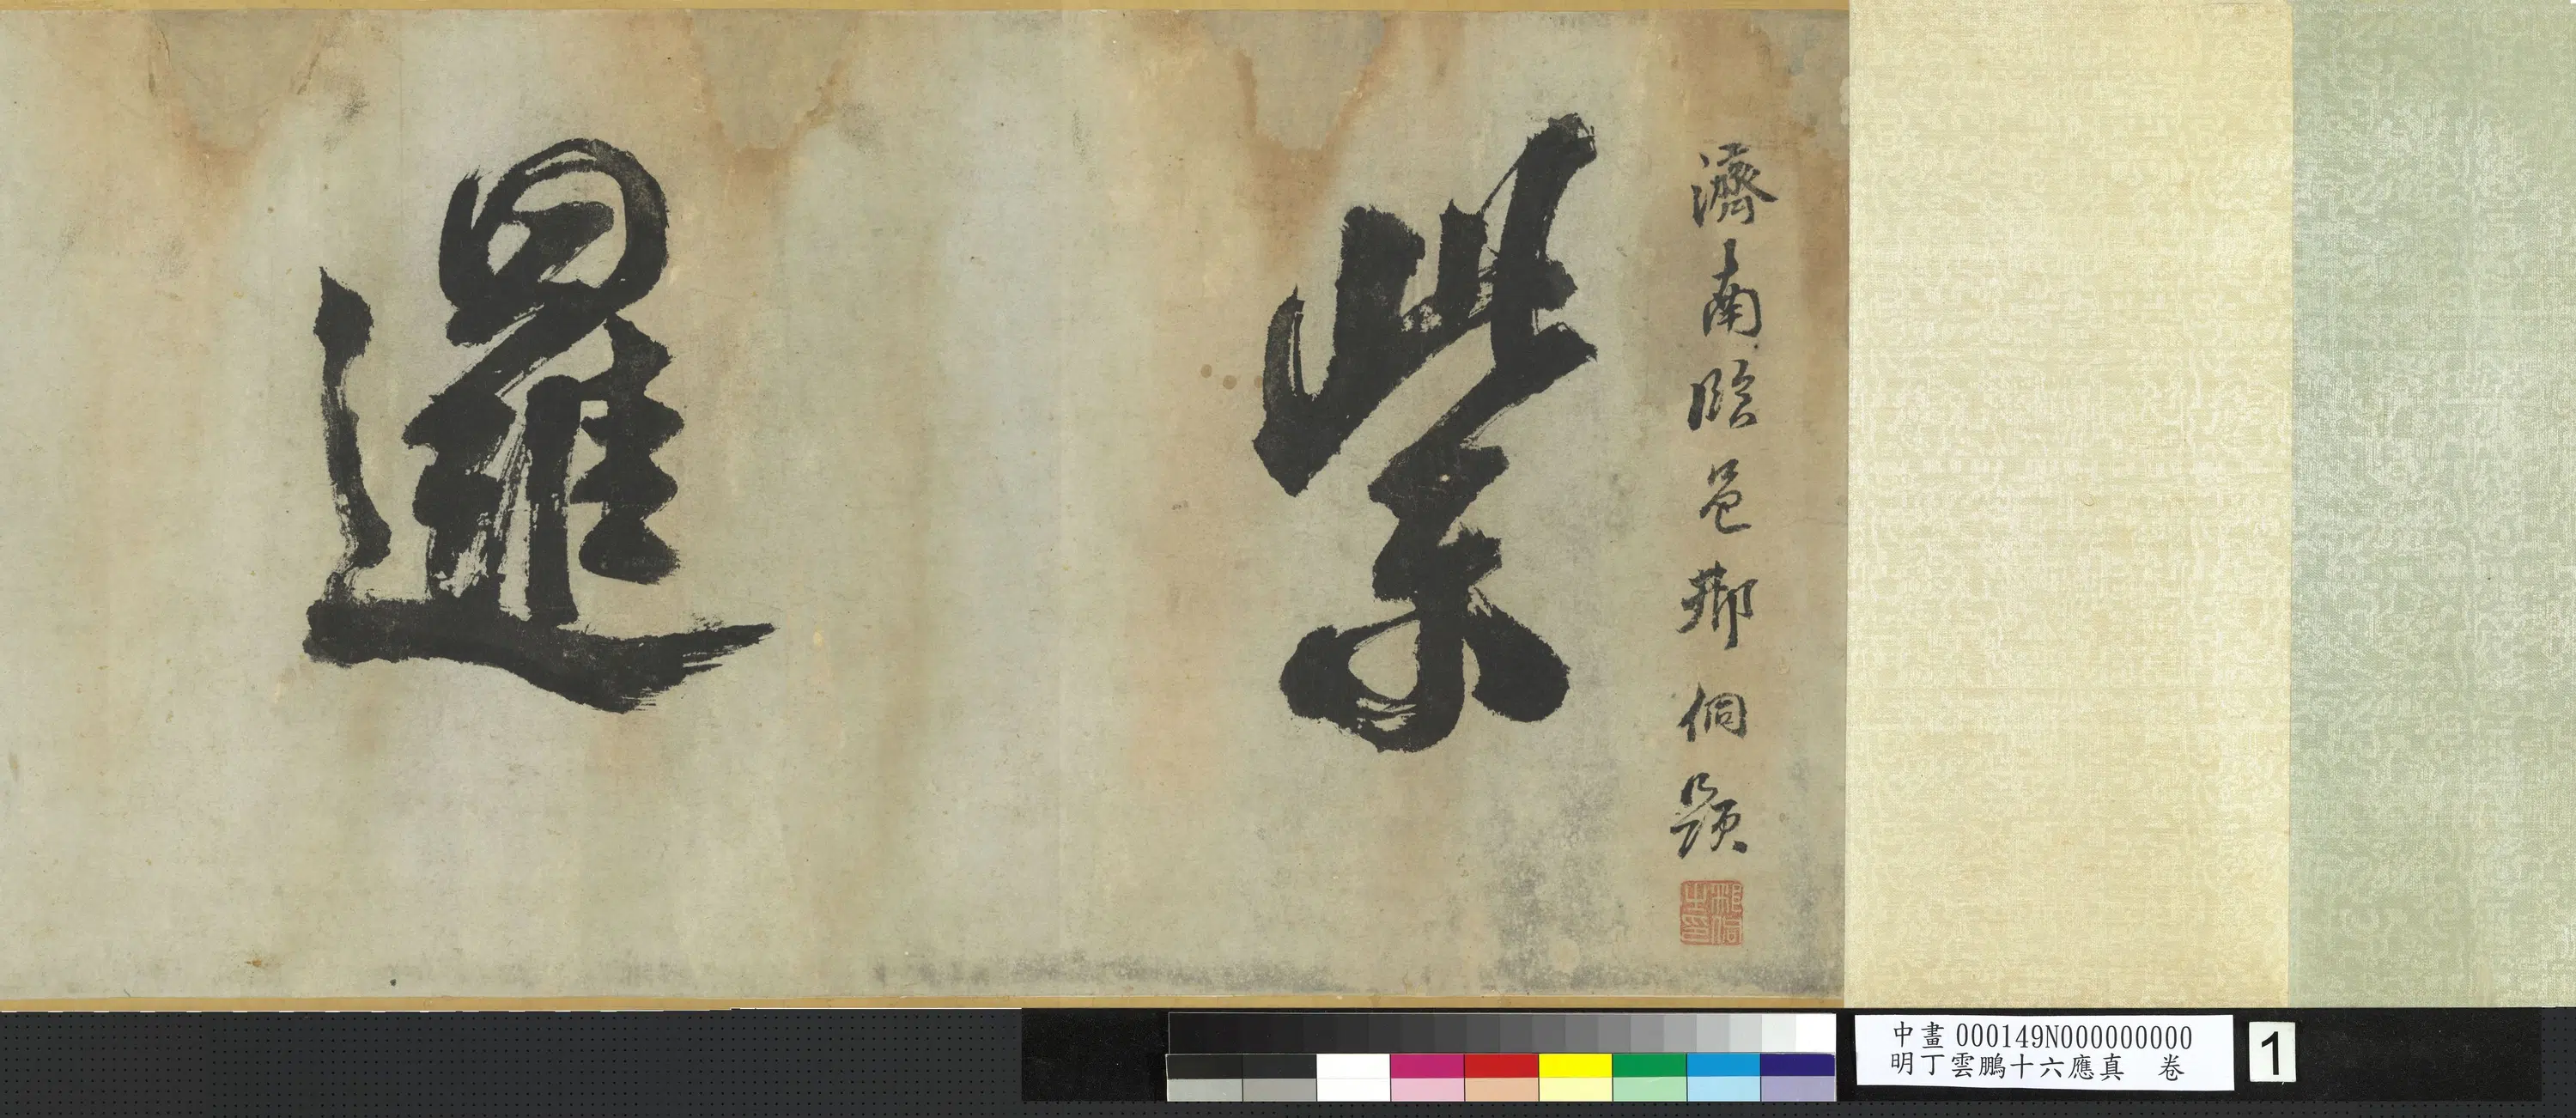 濟南臨邑邢侗題
邢侗之印
紫邏
中畫 000149N000000000
明丁雲鵬十六應真 卷
1